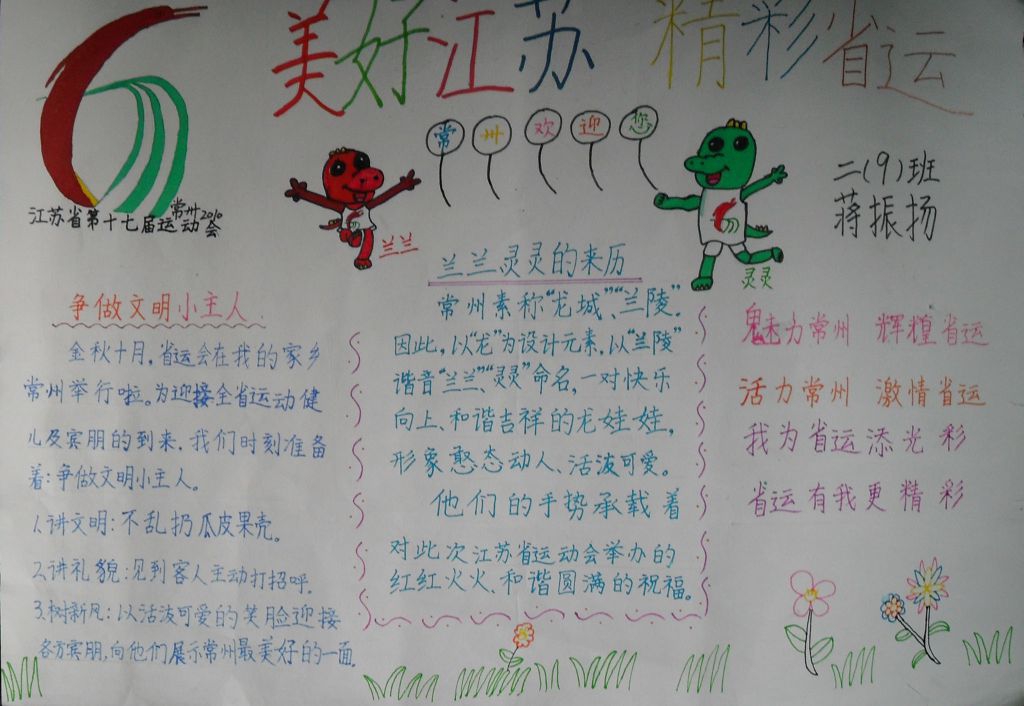 美好江苏 精彩省运
常州欢迎您
江苏省第十七届运动会
常州2010
二(9)班
蒋振扬
兰兰
灵灵
争做文明小主人
金秋十月,省运会在我的家乡
常州举行啦。为迎接全省运动健
儿及宾朋的到来,我们时刻准备
着:争做文明小主人。
1.讲文明:不乱扔瓜皮果壳。
2.讲礼貌:见到客人主动打招呼.
3.树新风:以活泼可爱的笑脸迎接
各方宾朋,向他们展示常州最美好的一面.
兰兰灵灵的来历
常州素称“龙城”、“兰陵”.
因此,以“龙”为设计元素,以“兰陵”
谐音“兰兰”“灵灵”命名,一对快乐
向上、和谐吉祥的龙娃娃,
形象憨态动人、活泼可爱。
他们的手势承载着
对此次江苏省运动会举办的
红红火火、和谐圆满的祝福。
魅力常州 辉煌省运
活力常州 激情省运
我为省运添光彩
省运有我更精彩